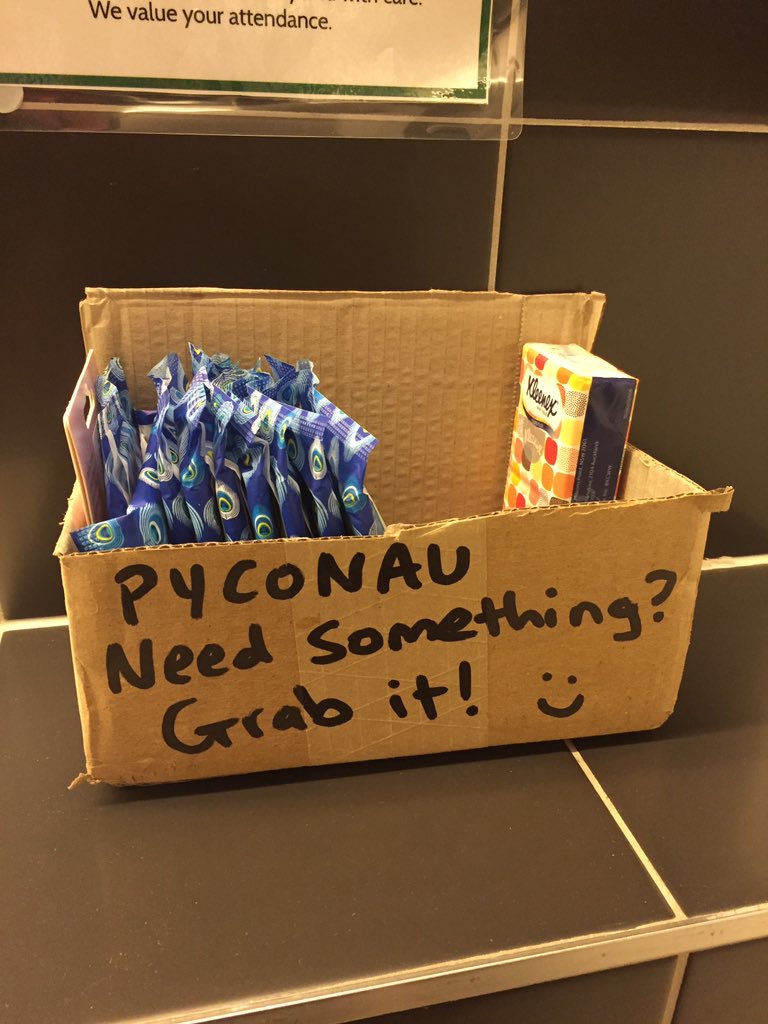 with care.
We value your attendance.
Kleenex
PYCONAU
Need Something?
Grab it!